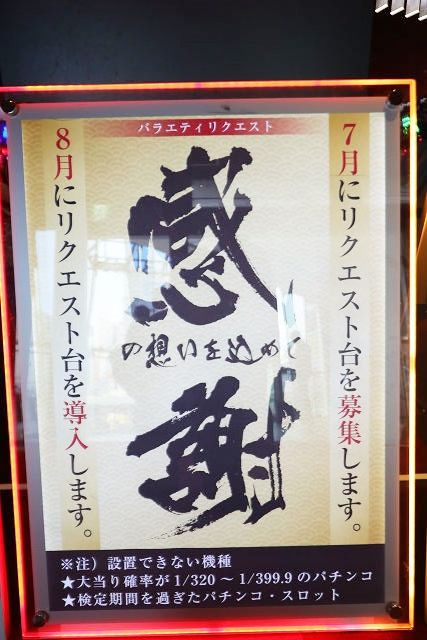 バラエティリクエスト
7月にリクエスト台を募集します。
感謝
の想いを込めて
8月にリクエスト台を導入します。
※注）設置できない機種
★大当り確率が1/320～1/399.9のパチンコ
★検定期間を過ぎたパチンコ・スロット